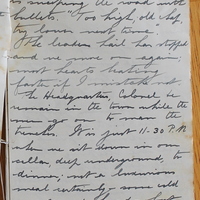 is sweeping the road with
bullets. "Too high, old chap,
try lower next time".
The leaden hail has stopped
and we move on again;
most hearts beating
faster if I mistake not.
The Headquarters Colonel &c
remain in the town while the
me go on to man the
trenches. It is just 11.30 P.M
when we sit down in our
cellar, deep underground, to
dinner; not a luxurious
meal certainly; some cold